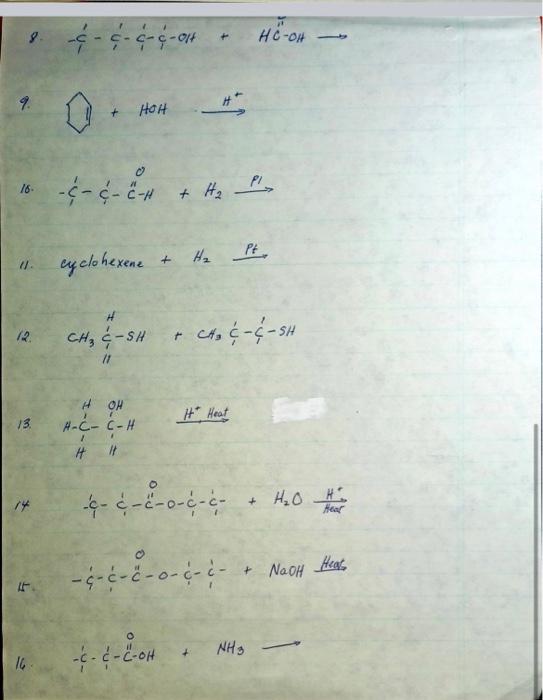 8. -C - C - C - C - OH + HC - OH →
9. + HOH H+ →
10. -C - C - C - H + H2 Pt →
O
11. cyclohexene + H2 Pt →
H
12. CH3 C - SH + CH3 C - C - SH
H
H OH
13. H - C - C - H H+ Heat →
H H
O
14 -C - C - C - O - C - C - + H2O H+ Heat →
O
15. -C - C - C - O - C - C - + NaOH Heat →
O
16. -C - C - C - OH + NH3 →